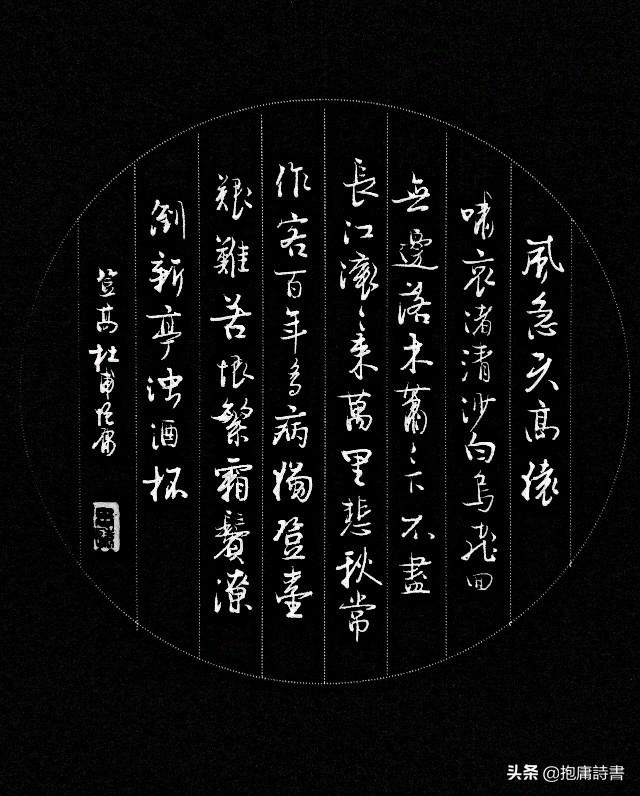 風急天高猿
嘯哀渚清沙白鳥飛回
無邊落木蕭々下不盡
長江滾々来萬里悲秋常
作客百年多病獨登臺
艱難苦恨繁霜鬢潦
倒新亭浊酒杯
登高杜甫抱庸
头条 @抱庸詩書